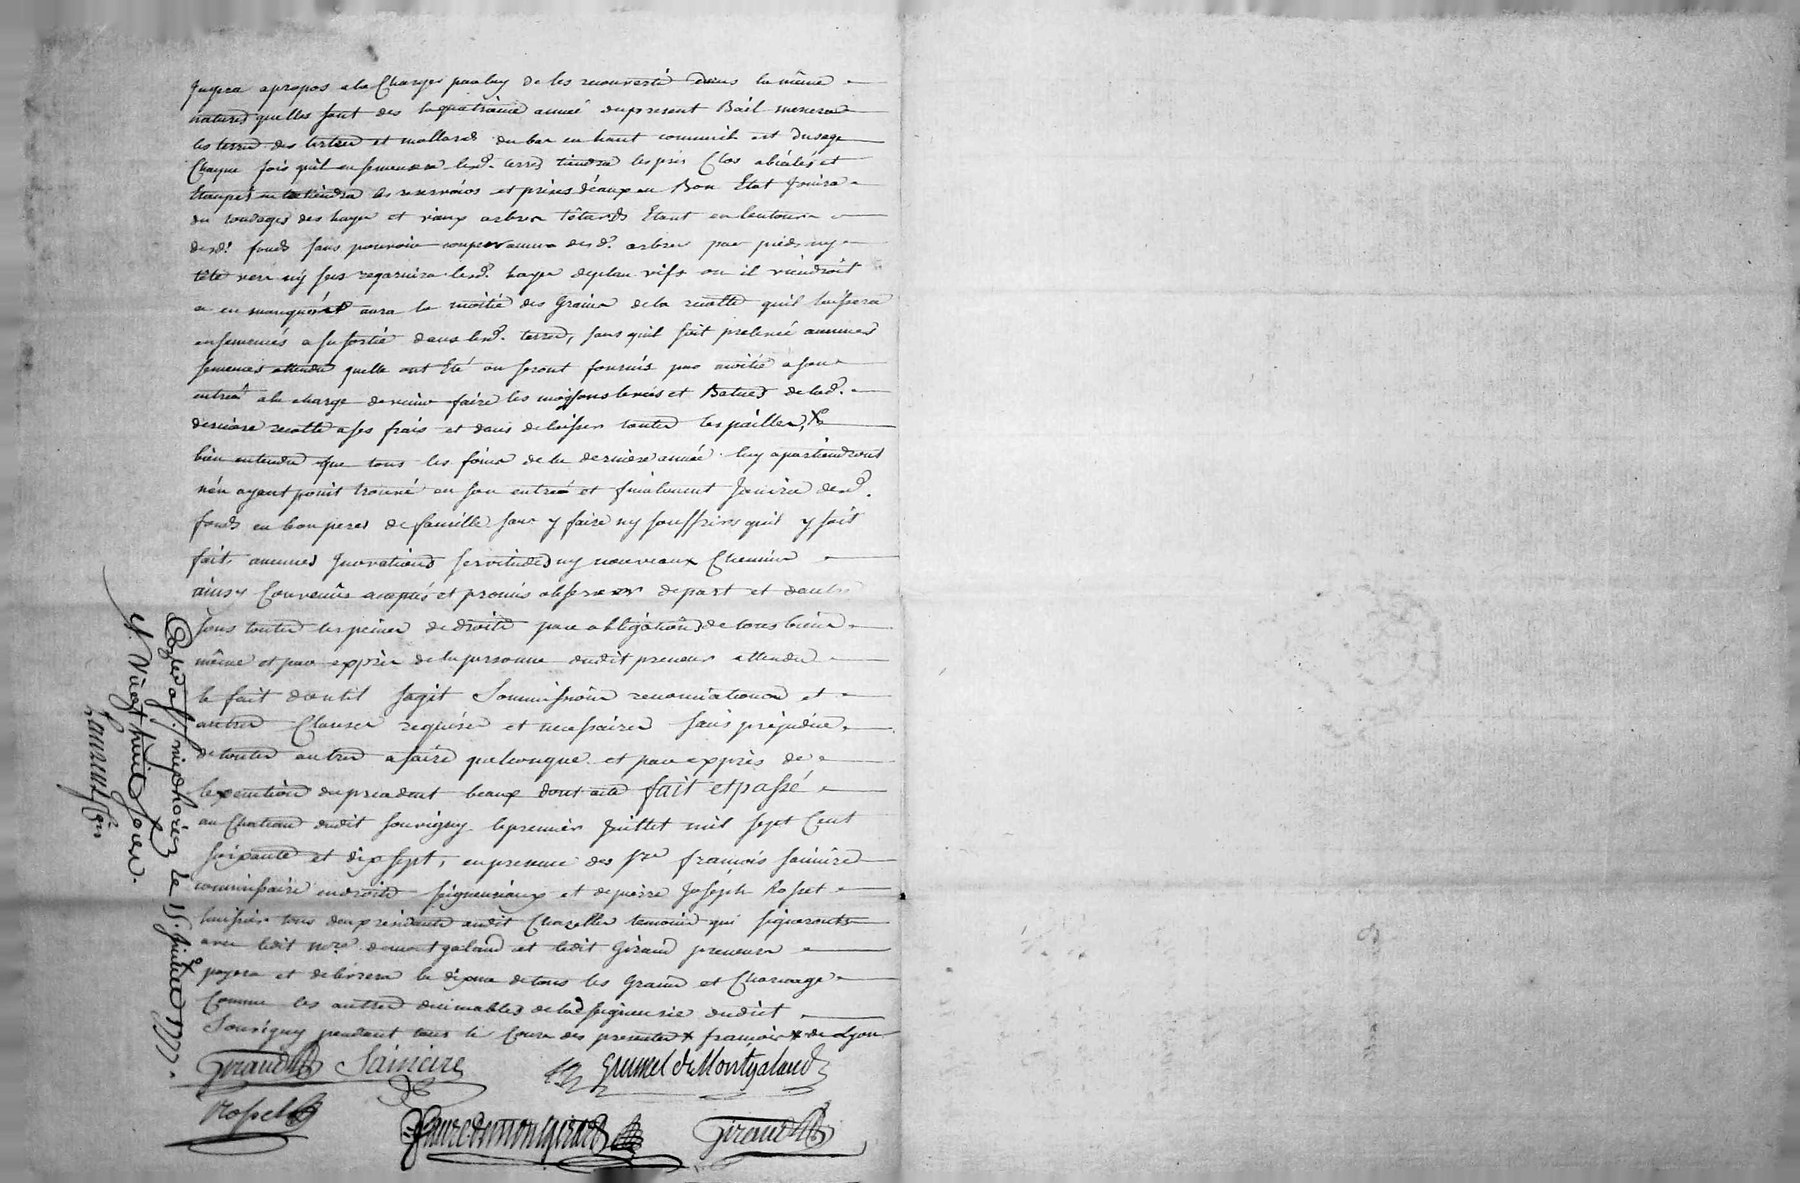 Jugera apropos ala Charge par luy de les reconvertir dans la même
natures quelles sont des laquatrième année dupresent Bail menera
les terres des tertres et mollards du bas en haut comme il est Dusage
Chaque fois quil ensemencera lesd. terres tiendra les prés Clos abéalés et
Etaupés entretiendra les reservoirs et prises déaux en Bon Etat Jouira
du tondages des hayes et vieux arbres têtards Etant en lentour
desd. fonds sans pouvoir couper aucuns desd. arbres par pieds ny
tête vers ny secs regarnira lesd. hayes deplan vifs ou il viendroit
a en manquer aura la moitié des Grains de la recolte quil laissera
ensemencés a sa sortie dans lesd. terres, sans quil soit prelevé aucunes
semences attendu quelle ont Eté ou seront fournis par moitié a son
entrée ala charge de venir faire les moissons levées et Batues de lad.
derniere recolte a ses frais et dans delaisser toutes les pailles,
bien entendu que tous les foins de la derniere année luy apartiendront
nén ayant point trouvé en son entrée et finalement Jouira desd.
fonds en bon peres de famille sans y faire ny souffrire quil y soit
fait aucunes Jnovations servitudes ny nouveaux Chemins
ainsy Convenûs acceptés et promis observer depart et dautre
sous toutes les peines de droits par obligations de tous biens
même et par exprès de la personne dudit preneur attendu
le fait dont il sagit Soumissions renonciations et
autres Clauses requises et necessaires sans prejudice
de toutes autres afaire quelconque et par exprès de
lexecution du precedent beaux dont acte fait et passé
au Chateau dudit Souvigny le premier Juillet mil sept Cent
soixante et dix sept, en presence des Sre françois Sainire
commissaire en droits seigneuriaux et de pierre Joseph Rosset
huissier tous deux residants audit Chazelles temoins qui signeronts
avec ledit Mre. demontgaland et ledit Giraud preneurs
payera et delivrera la dixme detous les Grains et Charnage
Comme les autres decimables delad Seigneurie dudit
Souvigny pendant tous le Cours des presentes x françois x de Lyon
Giraud Sainire Grumel de Montgaland
Rosset
Faure de montgirard Giraud
Conlé a St. simphorien le 15. Juillet 1777.
R. Vingt huit sols